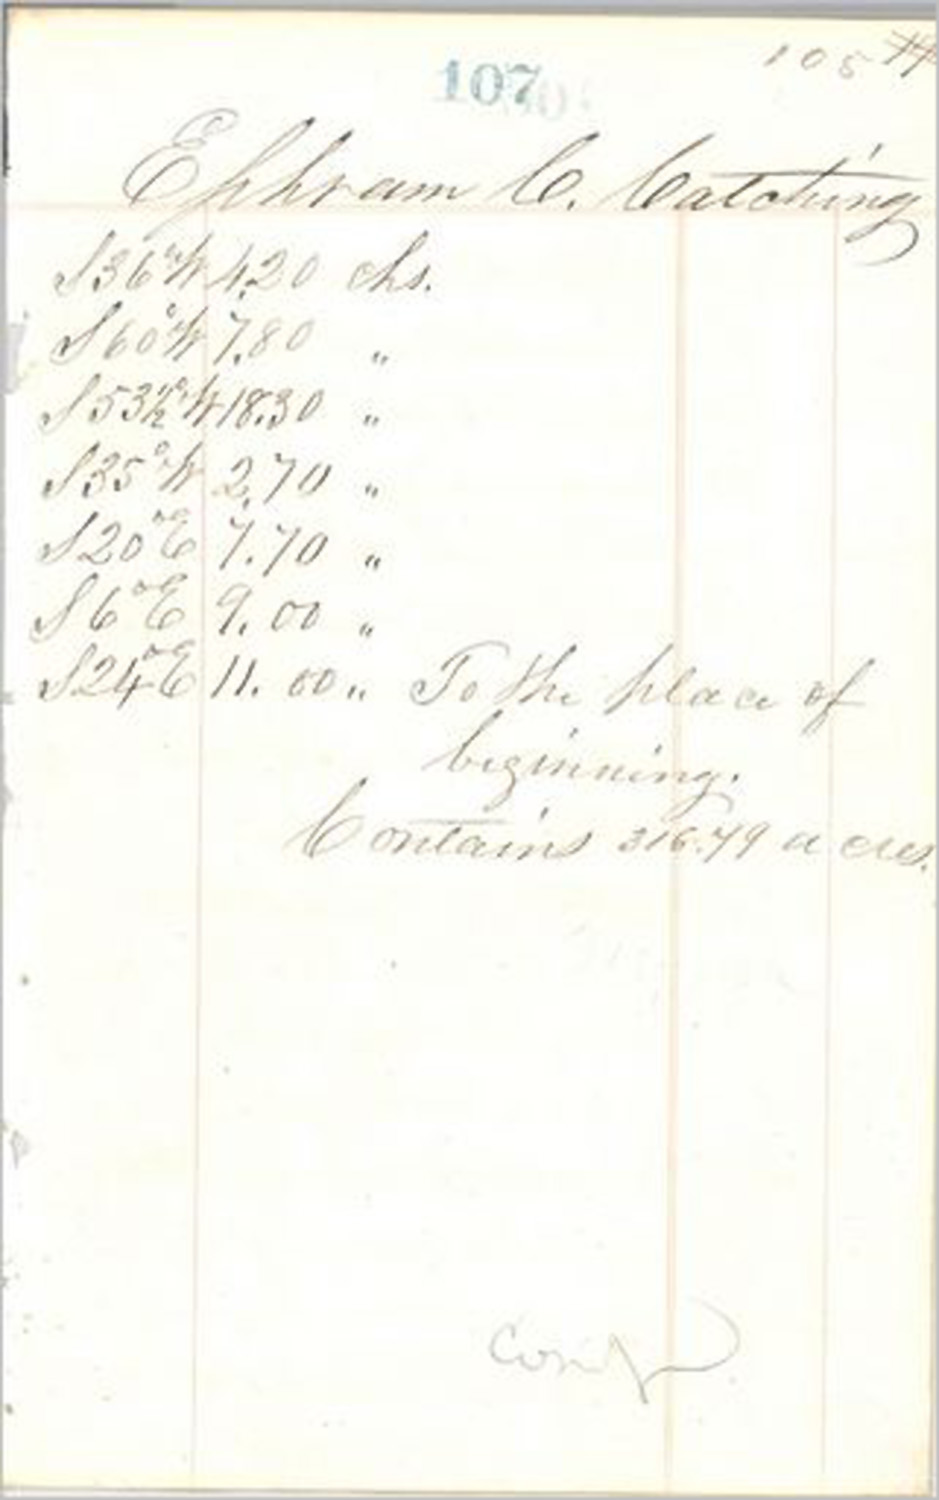 107
105
Ephram C. Catching
S36°W 4.20 chs.
S60°W 7.80 "
S53½°W 18.30 "
S35°W 2.70 "
S20°E 7.70 "
S6°E 9.00 "
S24°E 11.00 " To the place of
beginning.
Contains 316.79 acres.